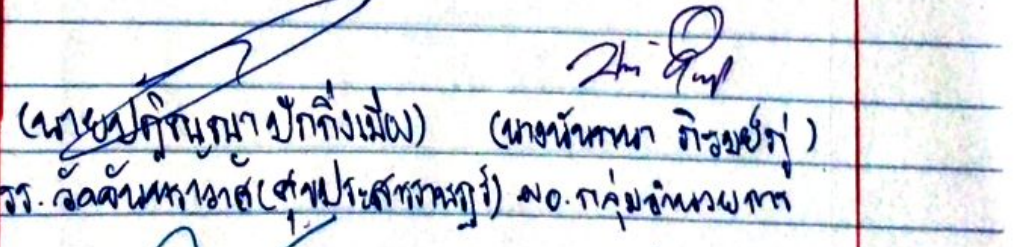 (นายปฏิญญา ปักกิ่งเมือง) (นางนันทนา ภิรมย์ภู่)
รร. วัดจันทราวาส(ศุขประสารราษฎร์) ผอ. กลุ่มอำนวยการ